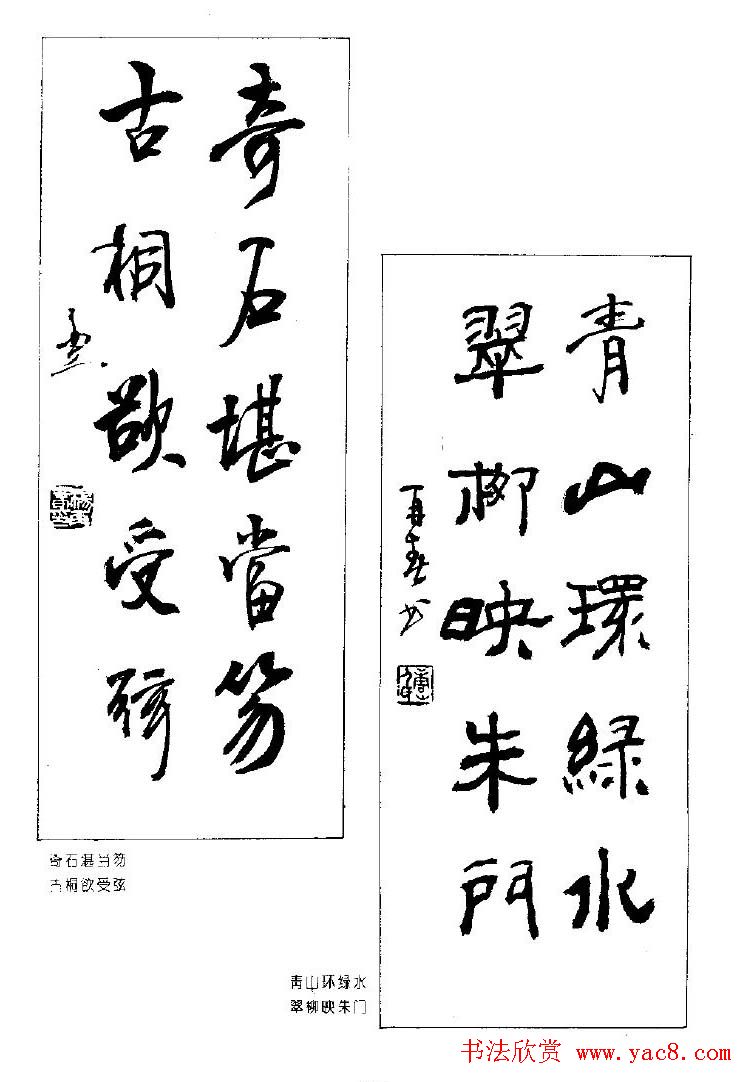 奇石堪當笏
古桐欲受弦
奇石堪当笏
古桐欲受弦
青山環緑水
翠柳映朱門
青山环绿水
翠柳映朱门
书法欣赏 www.yac8.com